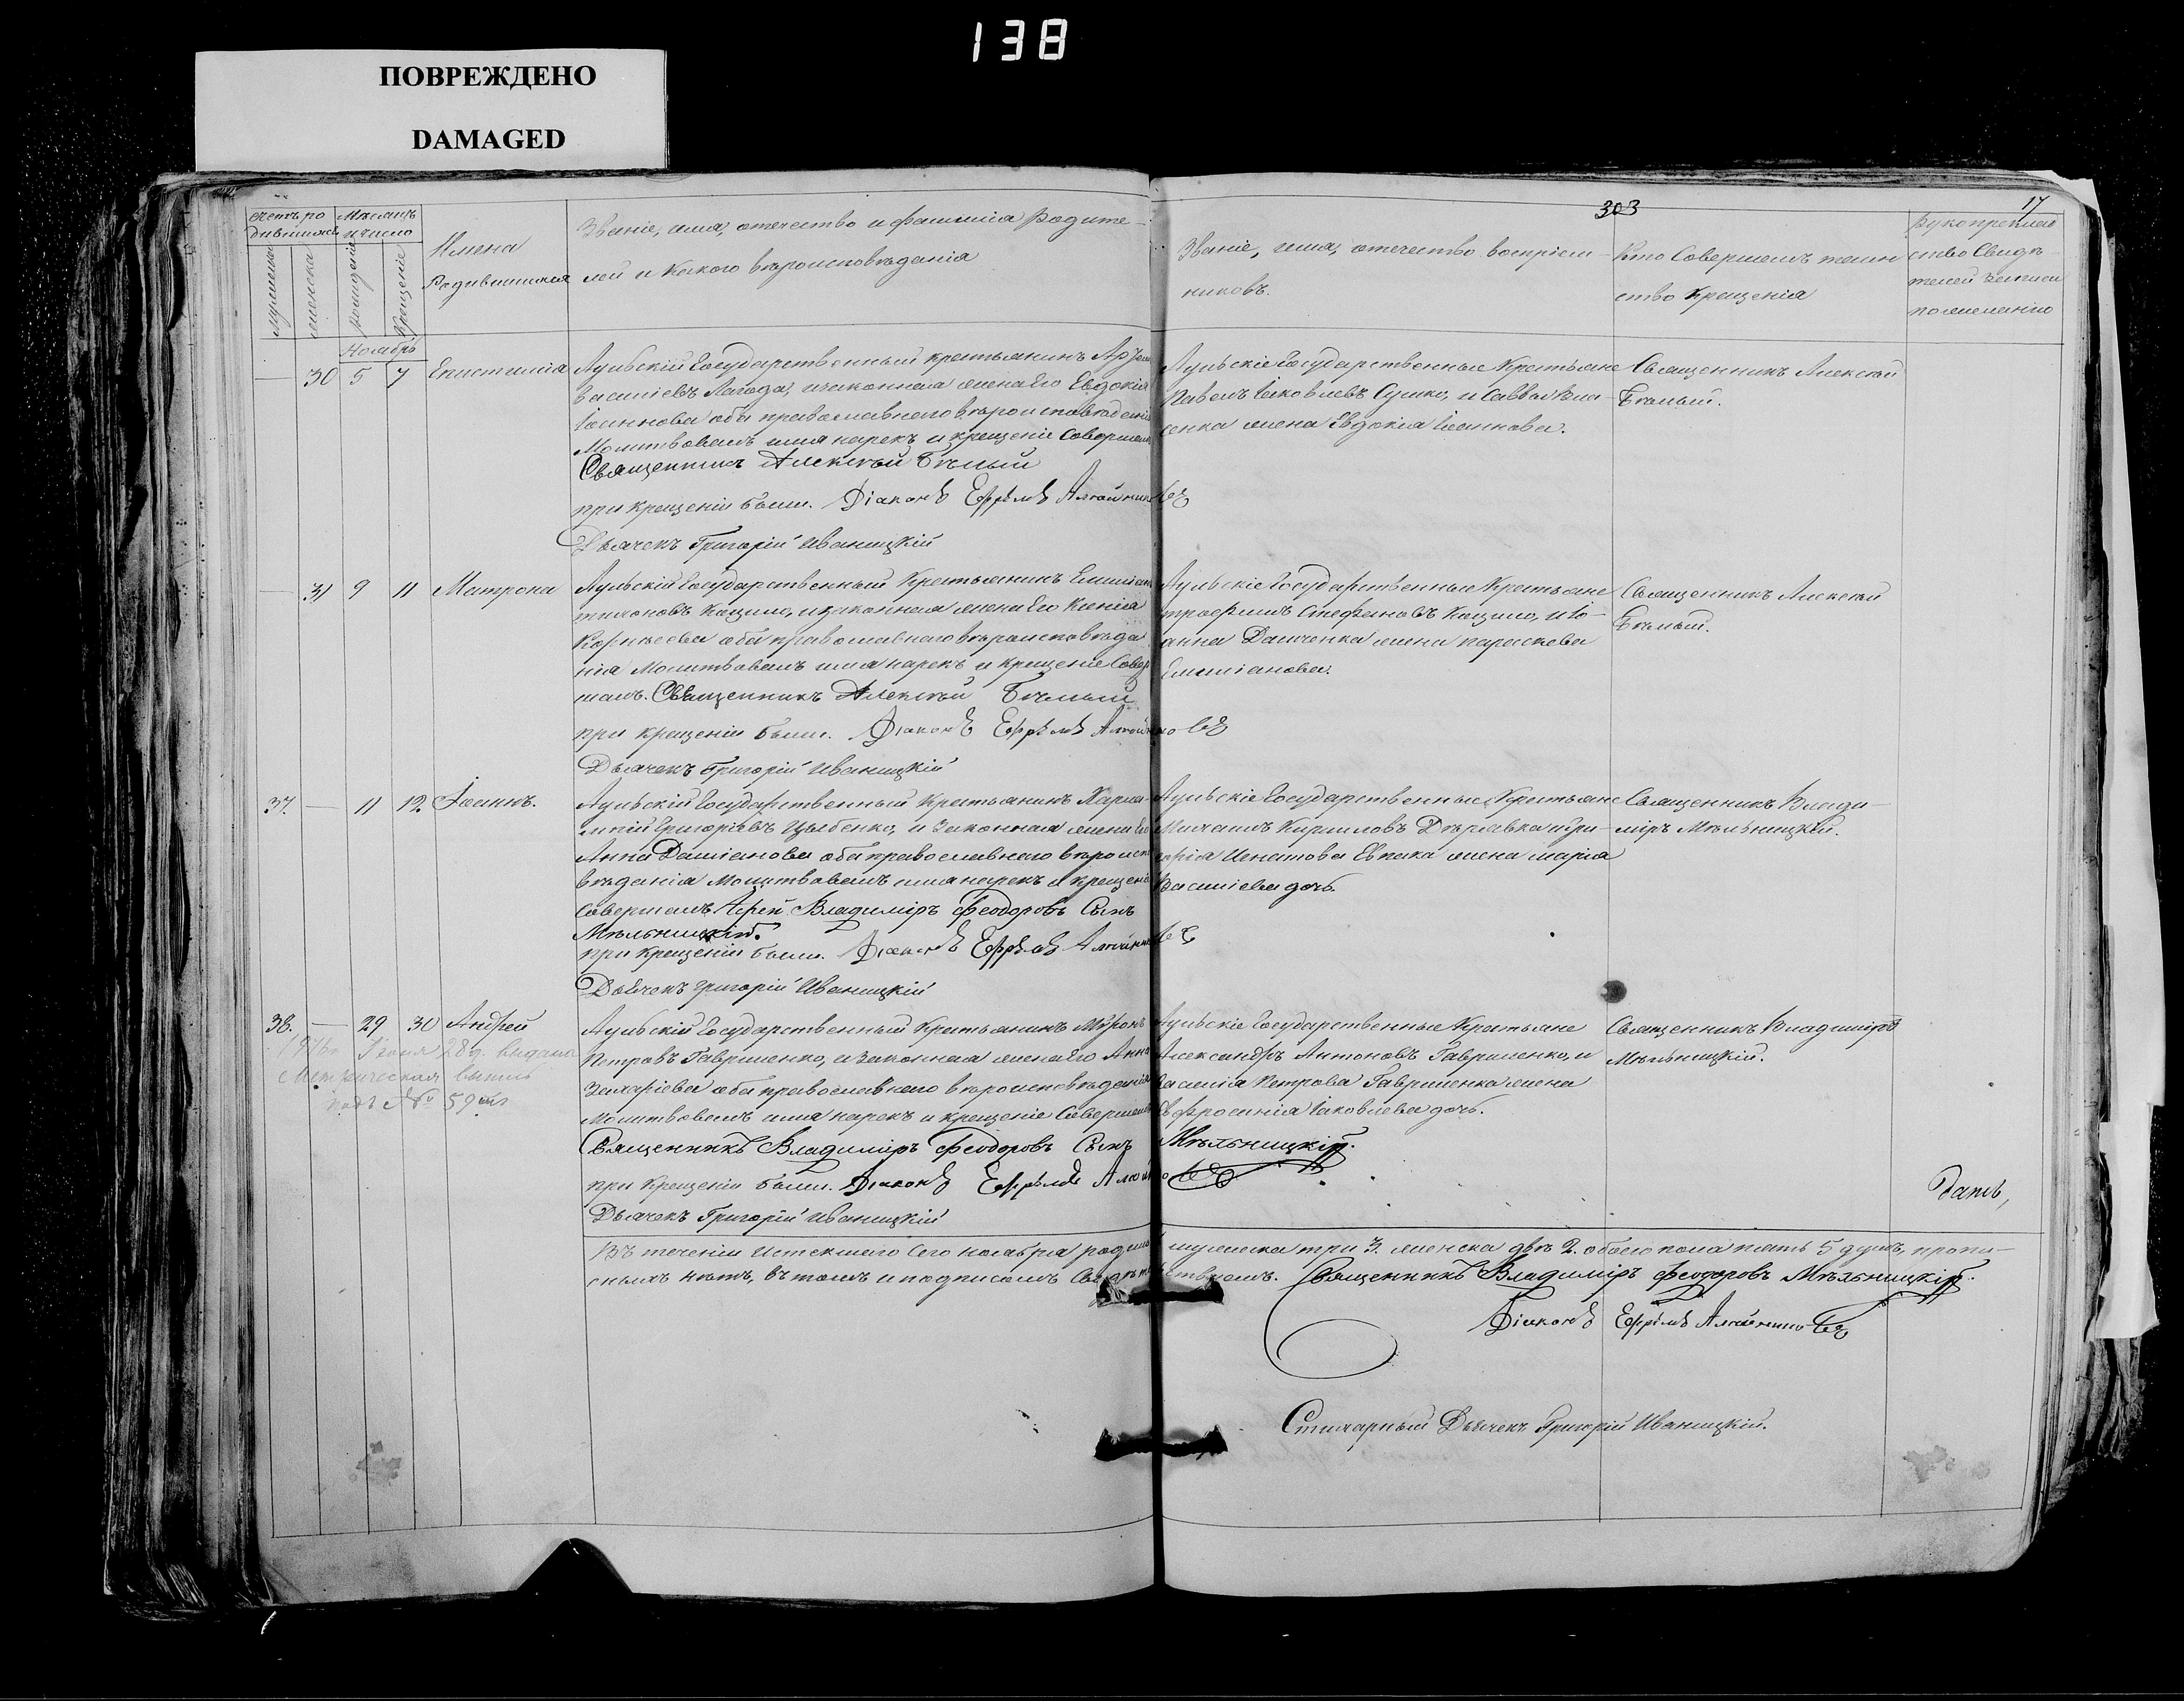 138
ПОВРЕЖДЕНО
DAMAGED
303
17
Счетъ ро
дившихся
Мѣсяцъ
и число
мужеска
женска
рожденія
Крещенія
Имена
Родившихся
Званіе, имя, отечество и фамилія Родите-
лей и какого вѣроисповѣданія
Званіе, имя, отечество воспріем-
никовъ.
Кто Совершалъ таин
ство Крещенія
Рукоприклад
ство Свидѣ
телей записи
по желанію
Ноябрь
30 5 7 Епистимія
Государственный крестьянинъ
Василіевъ Лагода, и законная жена Его Евдокія
Іоаннова оба православнаго вѣроисповѣданія
Молитвовалъ имя нарекъ и крещеніе Совершалъ
Священникъ Алексѣй Бѣлый
при крещеніи были. Діаконъ Ефремъ
Дьячекъ Григорій Иваницкій
Государственные Крестьяне
Павелъ Іаковлевъ Сушко, и Саввы Вла-
сенка жена Евдокія Іоаннова.
Священникъ Алексѣй
Бѣлый.
31 9 11 Матрона
Государственный Крестьянинъ Емиліанъ
Тихоновъ Кацило, и законная жена Его Ксенія
оба православнаго вѣроисповѣда
нія Молитвовалъ имя нарекъ и крещеніе Совер
шалъ. Священникъ Алексѣй Бѣлый
при крещеніи были. Діаконъ Ефремъ
Дьячекъ Григорій Иваницкій
Государственные Крестьяне
Трофимъ Стефановъ Кацило, и Іо-
анна жена Параскева
Емиліанова.
Священникъ Алексѣй
Бѣлый.
37. 11 12 Іоаннъ.
Государственный Крестьянинъ Харла-
мпій Григоріевъ Цыбенко, и Законная жена Его
Анна Даміанова оба православнаго вѣроиспо
вѣданія Молитвовалъ имя нарекъ и крещеніе
Совершалъ Іерей Владиміръ Феодоровъ Сынъ
Мѣльницкій.
при крещеніи были. Діаконъ Ефремъ
Дьячекъ Григорій Иваницкій
Государственные Крестьяне
Михаилъ Кирилловъ и Гри-
горія Игнатова жена Марія
Василіева дочь.
Священникъ Влади-
міръ Мѣльницкій.
38. 29 30 Андрей
Іюня 28 д. выдана
Метрическая выпись
подъ № 59
Государственный Крестьянинъ Миронъ
Петровъ Гавриленко, и Законная жена Его Анна
Захаріева оба православнаго вѣроисповѣданія
Молитвовалъ имя нарекъ и крещеніе Совершалъ
Священникъ Владиміръ Феодоровъ Сынъ Мѣльницкій.
при Крещеніи были. Діаконъ Ефремъ
Дьячекъ Григорій Иваницкій
Государственные Крестьяне
Александръ Антоновъ Гавриленко, и
Василія Петрова Гавриленка жена
Евфросинія Іаковлева дочь.
Священникъ Владиміръ
Мѣльницкій.
дать,
Въ теченіи Истекшаго Сего ноября родилось мужеска три 3. женска двѣ 2. обоего пола пять 5 душъ, пропи-
сныхъ нѣтъ, въ томъ и подписомъ Свидѣтельствуемъ. Священникъ Владиміръ Феодоровъ Мѣльницкій.
Діаконъ Ефремъ
Стихарный Дьячекъ Григорій Иваницкій.